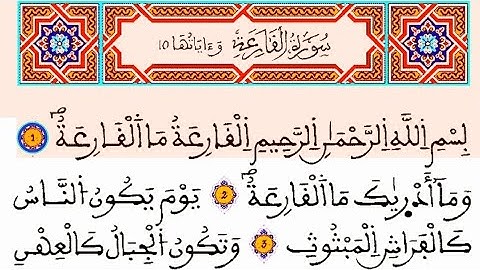 سُورَةُ الْقَارِعَةِ وَءَايَاتُهَا 10
بِسْمِ اِللَّهِ اِلرَّحْمَٰنِ اِلرَّحِيمِ اِلْقَارِعَةُ مَا اَلْقَارِعَةُۖ 1
وَمَا أَدْرَىٰكَ مَا اَلْقَارِعَةُۖ 2 يَوْمَ يَكُونُ اُلنَّاسُ
كَالْفَرَاشِ اِلْمَبْثُوثِ 3 وَتَكُونُ اُلْجِبَالُ كَالْعِهْنِ